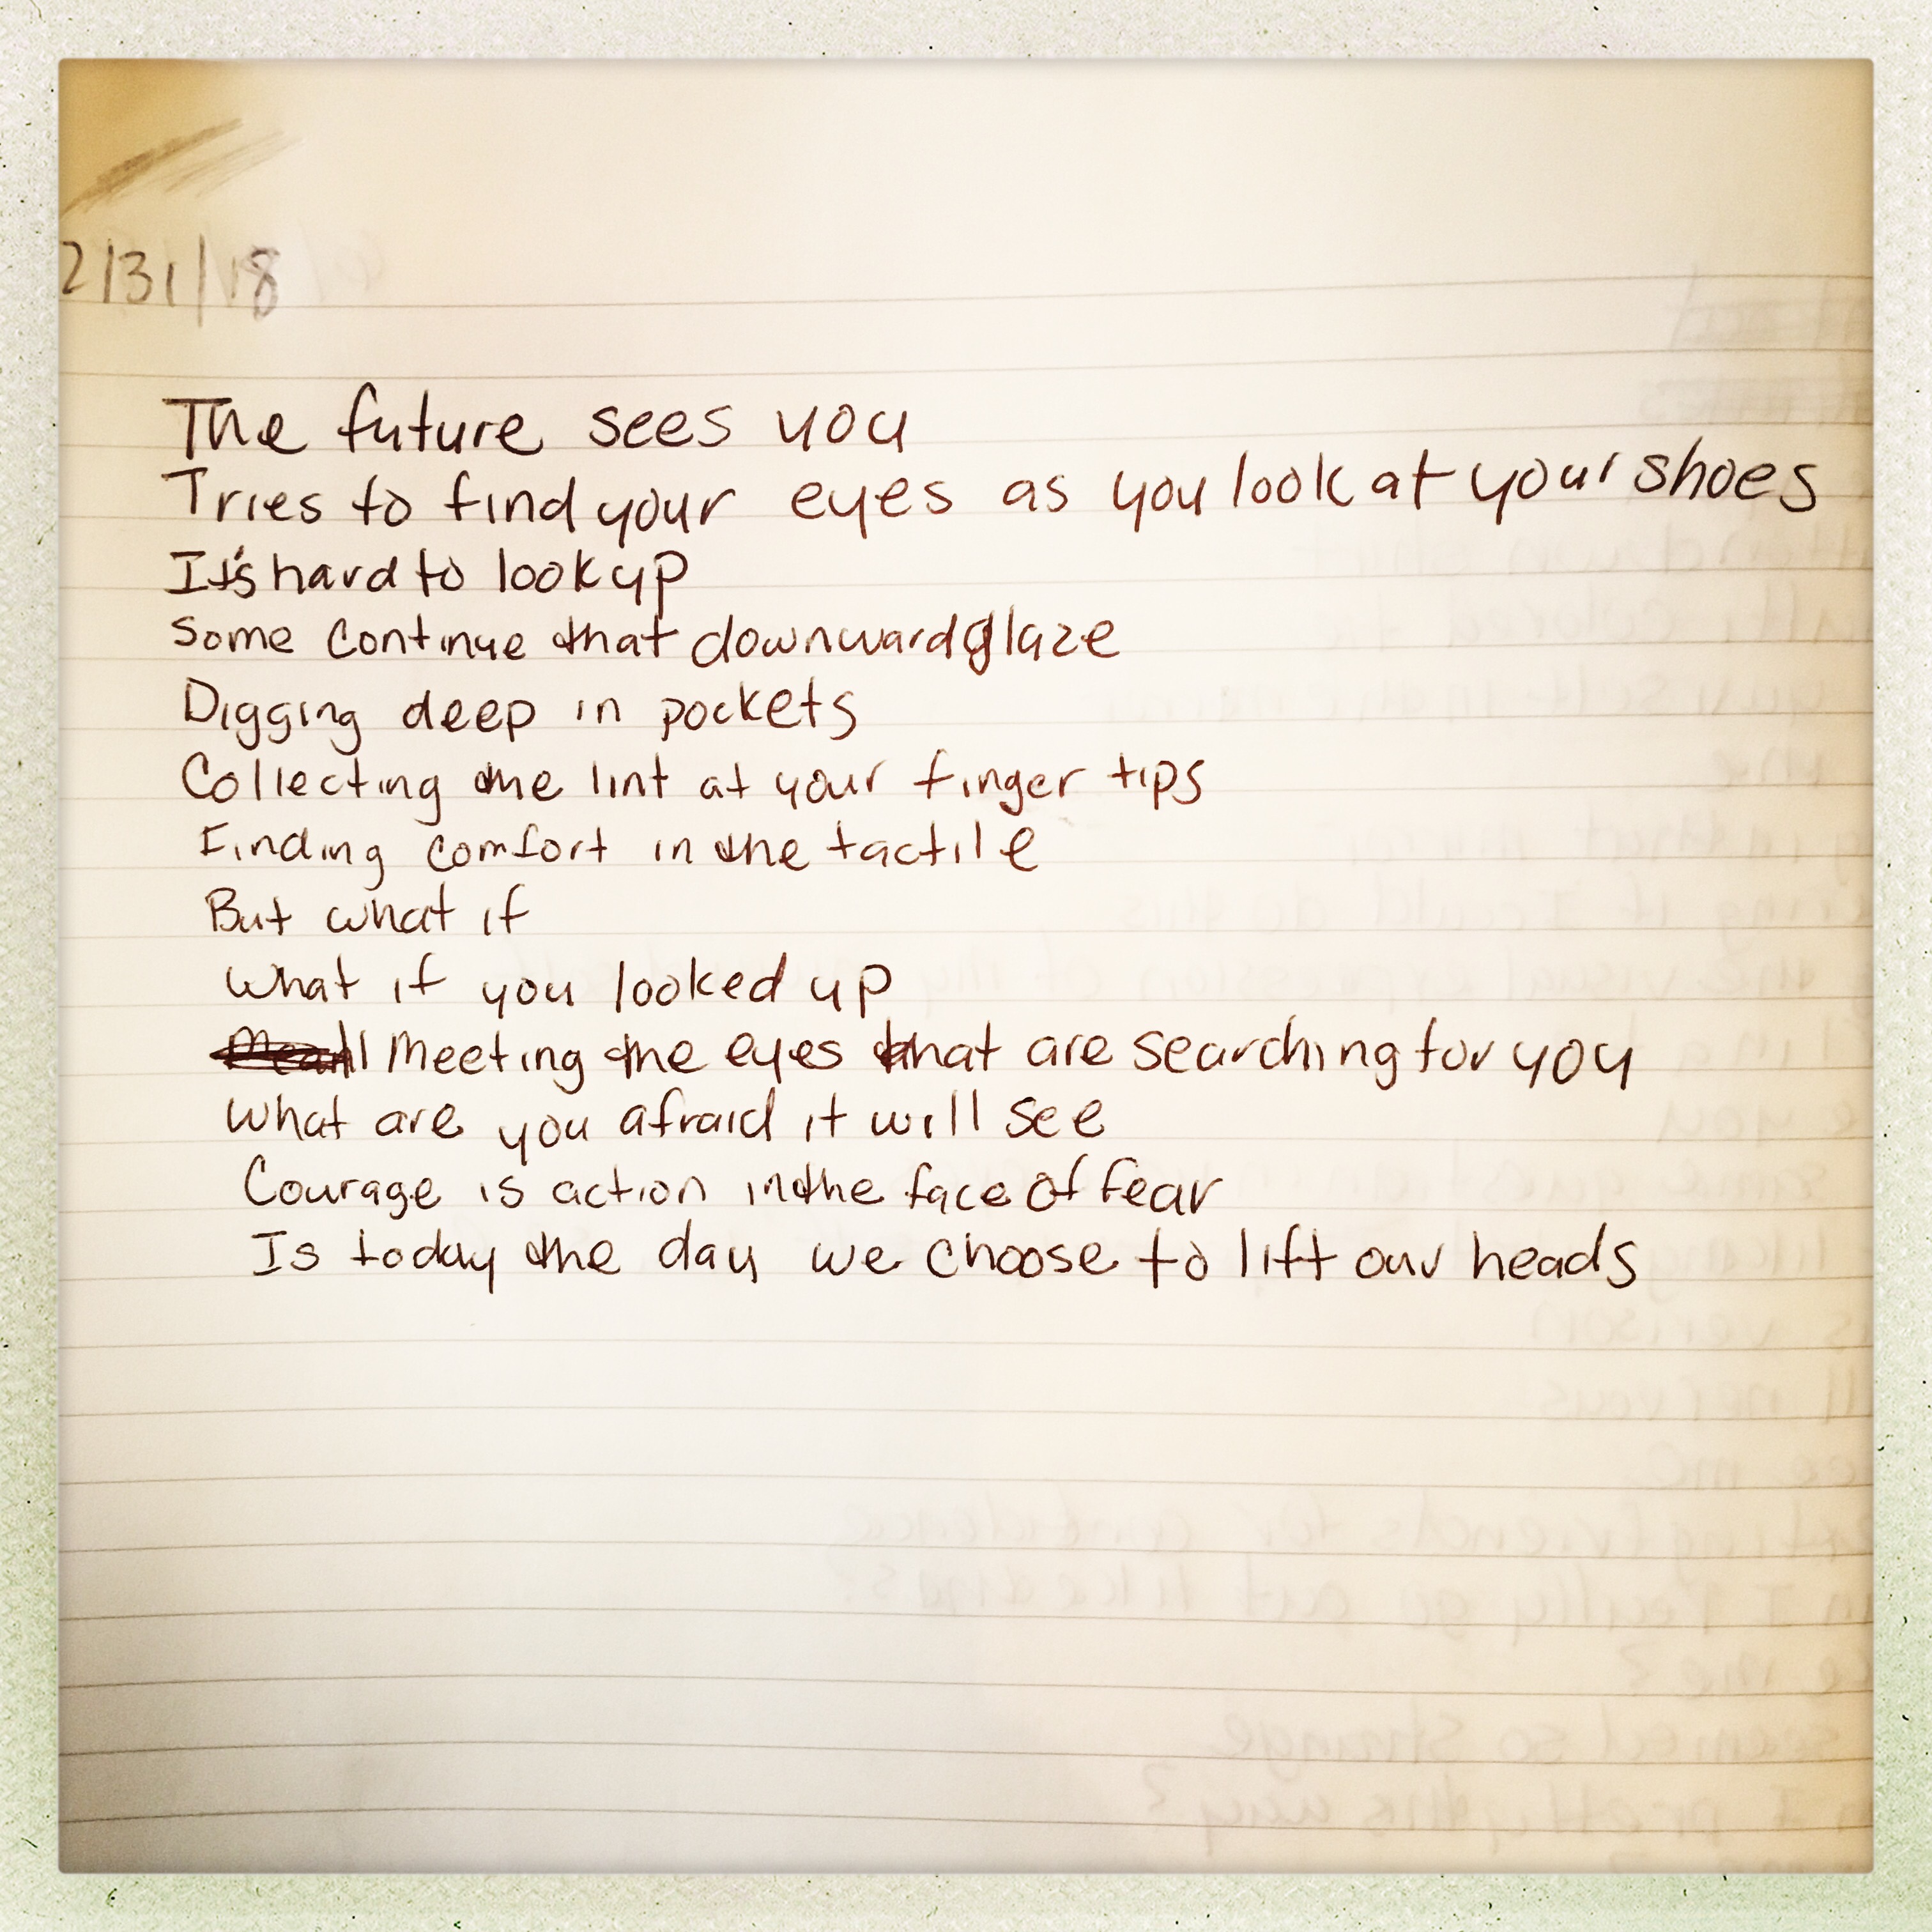 2/31/18
The future sees you
Tries to find your eyes as you look at your shoes
It's hard to look up
Some continue that downward glaze
Digging deep in pockets
Collecting the lint at your finger tips
Finding comfort in the tactile
But what if
What if you looked up
Meeting the eyes that are searching for you
What are you afraid it will see
Courage is action in the face of fear
Is today the day we choose to lift our heads